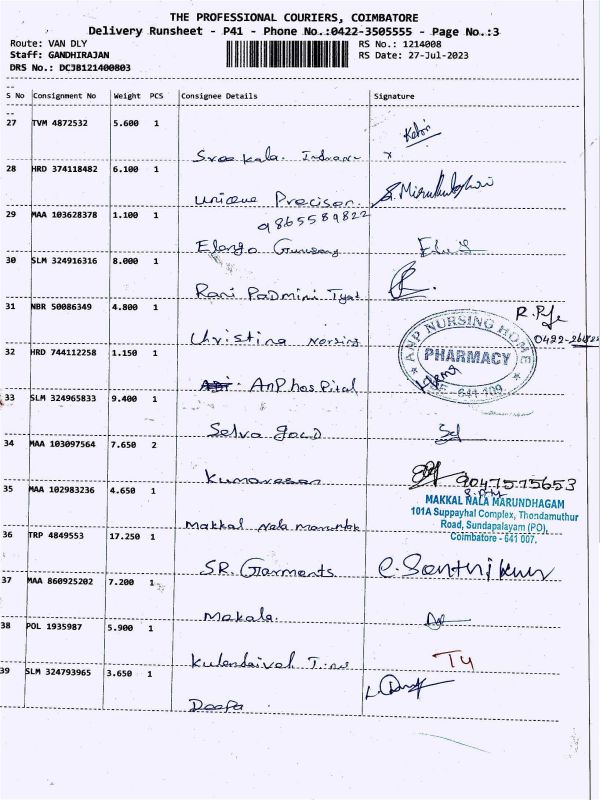 THE PROFESSIONAL COURIERS, COIMBATORE
Delivery Runsheet - P41 - Phone No.:0422-3505555 - Page No.:3
Route: VAN DLY
RS No.: 1214008
Staff: GANDHIRAJAN
RS Date: 27-Jul-2023
DRS No.: DCJB121400803
S No Consignment No Weight PCS Consignee Details Signature
27 TVM 4872532 5.600 1
Sreekala
28 HRD 374118482 6.100 1
unique Precison
29 MAA 103628378 1.100 1
9865589822
Elango
30 SLM 324916316 8.000 1
Rani Padmini
31 NBR 50086349 4.800 1
Christina
0422-
32 HRD 744112258 1.150 1
ANP NURSING HOME
PHARMACY
641 109
ANP hospital
33 SLM 324965833 9.400 1
Selva gold
34 MAA 103097564 7.650 2
Kumaresan
9047575653
35 MAA 102983236 4.650 1
MAKKAL NALA MARUNDHAGAM
101A Suppayhal Complex, Thondamuthur
Road, Sundapalayam (PO),
Coimbatore - 641 007.
Makkal Nala
36 TRP 4849553 17.250 1
SR. Garments
37 MAA 860925202 7.200 1
Makala
38 POL 1935987 5.900 1
Kulandaivel
39 SLM 324793965 3.650 1
Deepa